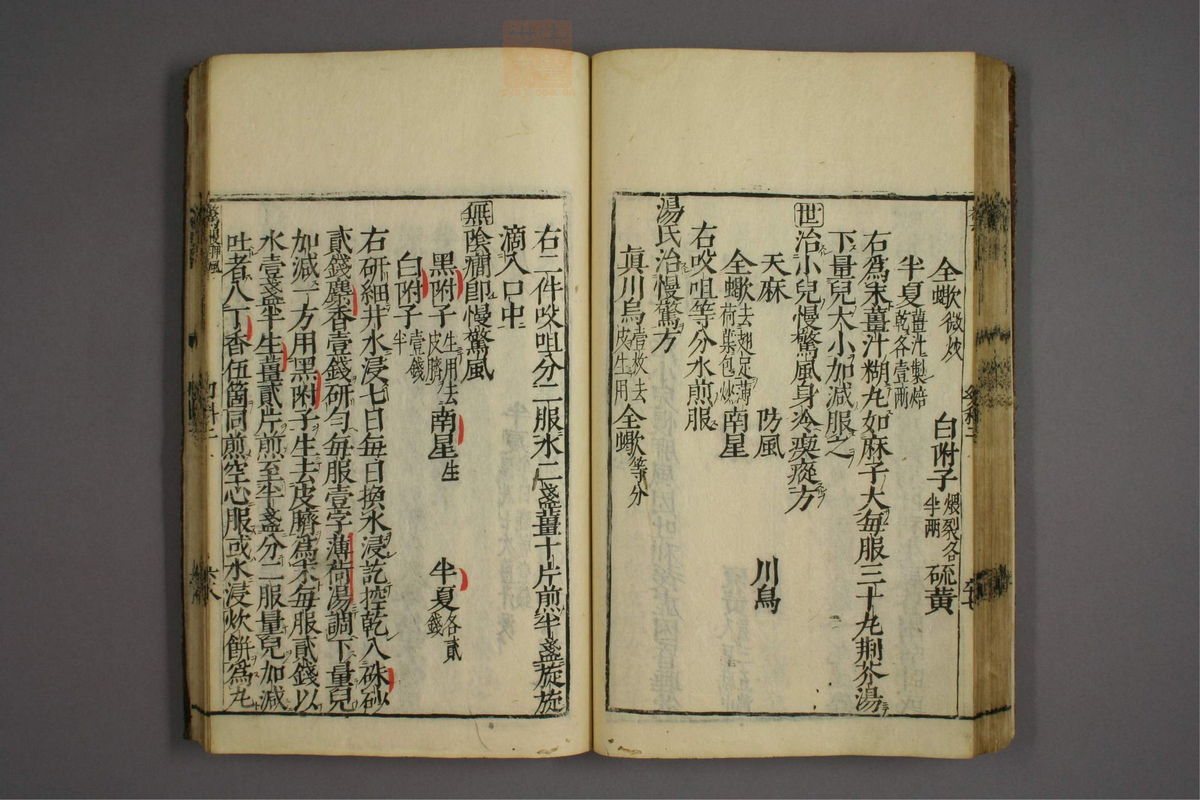 全蠍微炒
半夏薑汁製焙乾各壹兩 白附子煨裂各半兩 硫黃
右爲末薑汁糊丸如麻子大每服三十丸荆芥湯
下量兒大小加减服之
世治小兒慢驚風身冷瘈瘲方
天麻 防風 川烏
全蠍去翅足薄荷葉包炒 南星
右㕮咀等分水煎服
湯氏治慢驚方
眞川烏壹枚去皮生用 全蠍等分
右二件㕮咀分二服水二盞薑十片煎半盞旋旋
滴入口中
無陰癇即慢驚風
黑附子生用去皮臍 南星生 半夏各貳錢
白附子壹錢半
右研細井水浸七日每日換水浸訖控乾入硃砂
貳錢麝香壹錢研勻每服壹字薄荷湯調下量兒
加减一方用黑附子生去皮臍爲末每服貳錢以
水壹盞半生薑貳片煎至半盞分二服量兒加减
吐者入丁香伍箇同煎空心服或水浸炊餅爲丸
幼科二
六八